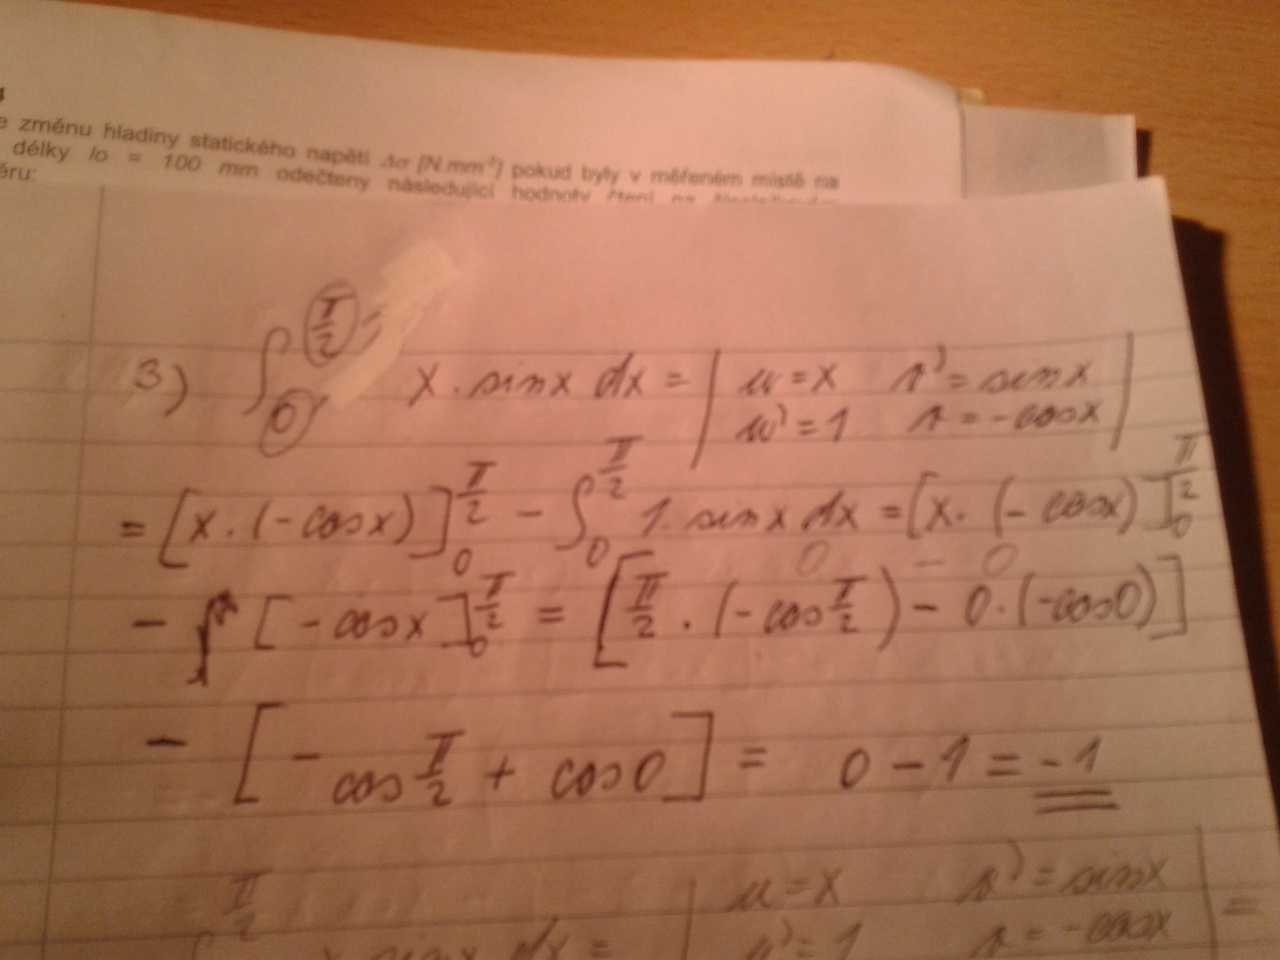 e změnu hladiny statického napětí Δσ [N.mm⁻²] pokud byly v měřeném místě na
délky lo = 100 mm odečteny následující hodnoty čtení na
ěru:
3) ∫₀^(π/2) x . sinx dx = | u = x v' = sinx
u' = 1 v = -cosx |
= [x . (-cosx)]₀^(π/2) - ∫₀^(π/2) 1 . sinx dx = [x . (-cosx)]₀^(π/2)
0 - 0
- [-cosx]₀^(π/2) = [π/2 . (-cos π/2) - 0 . (-cos0)]
- [-cos π/2 + cos0] = 0 - 1 = -1
π/2 u = x v' = sinx
∫ x sinx dx = | u' = 1 v = -cosx | =